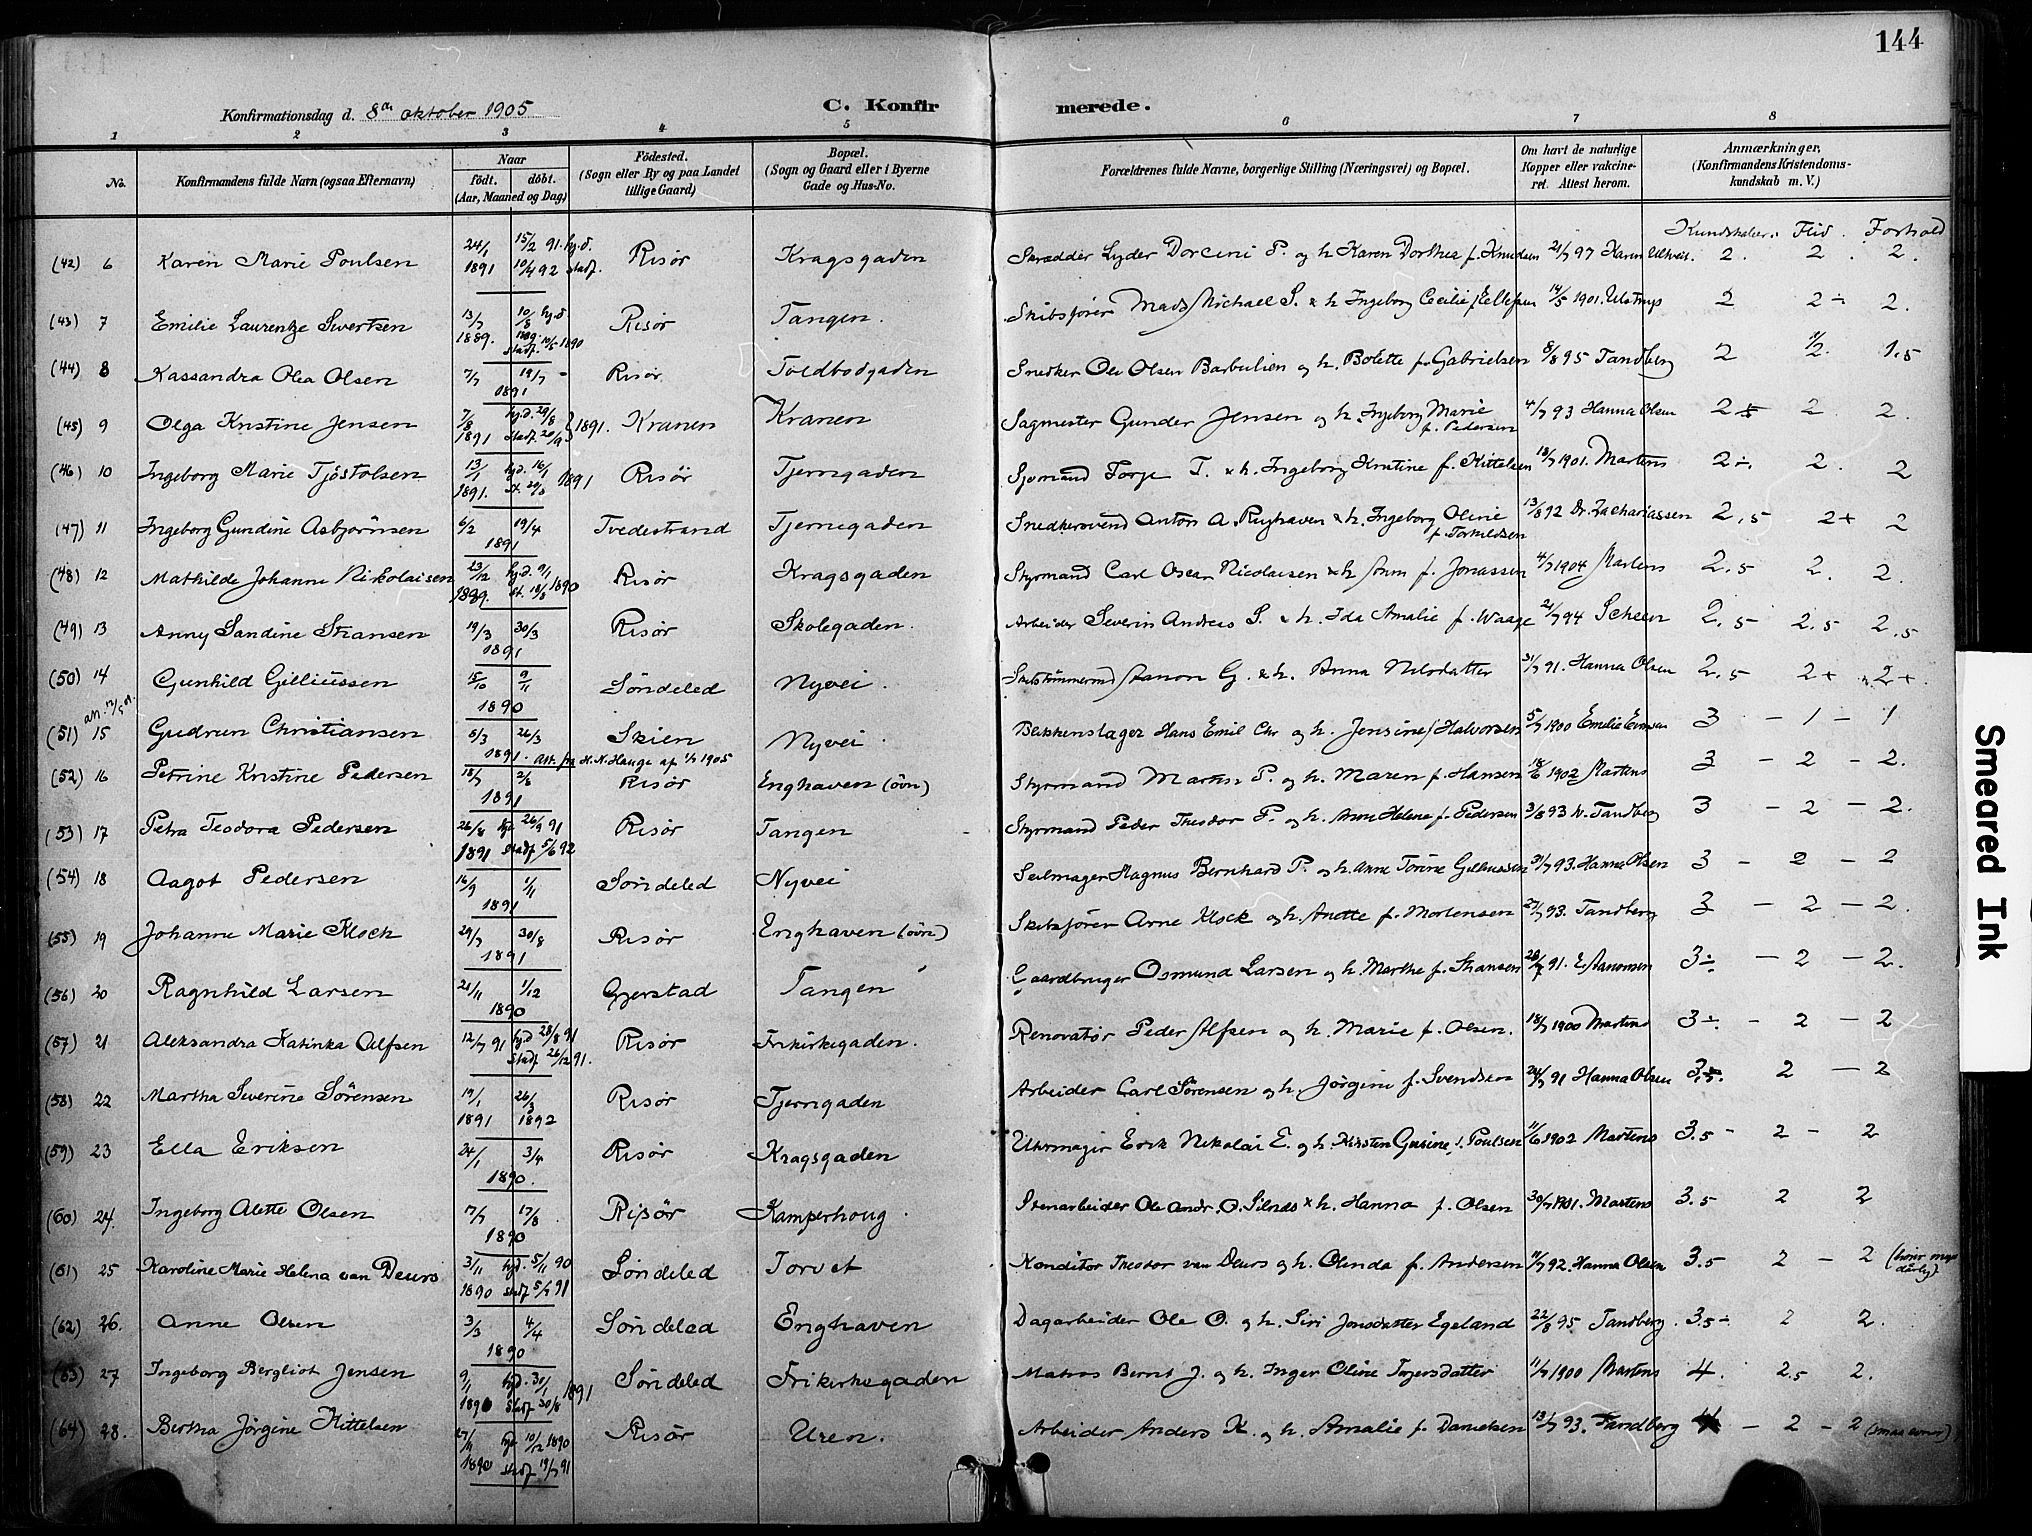 144
Konfirmationsdag d. 8de oktober 1905
C. Konfir merede.
1 2 3 4 5 6 7 8
No. Konfirmandens fulde Navn (ogsaa Efternavn) Naar født. døbt. (Aar, Maaned og Dag) Födested. (Sogn eller By og paa Landet tillige Gaard) Bopæl. (Sogn og Gaard eller i Byerne Gade og Hus-No. Forældrenes fulde Navne, borgerlige Stilling (Næringsvei) og Bopæl. Om havt de naturlige Kopper eller vakcineret. Attest herom. Anmærkninger, (Konfirmandens Kristendomskundskab m. V.)
Kundskaber. Flid. Forhold
(42) 6 Karen Marie Poulsen 24/1 1891 15/2 91. hj.d. 10/4 92 stadf. Risør Kragsgaden Skrædder Lyder Dorcini P. og h. Karen Dorthea f. Knudsen 21/7 97 Karen 2. 2. 2.
(43) 7 Emilie Laurentze Sivertsen 13/7 1889. 10/8 hj.d 1889. Stadf. 10/5 1890 Risør Tangen. Skibsfører Mads Michael S. & h. Ingeborg Cecilie f. Ellefsen 14/5 1901. Ulstrup 2 2÷ 2.
(44) 8 Kassandra Olea Olsen 7/7 19/7 1891 Risør Toldbodgaden Snedker Ole Olsen Barbulien og h. Bolette f. Gabrielsen 8/8 95 Tandberg 2 2. 1.5
(45) 9 Olga Kristine Jensen 7/8 1891 hj.d. 29/8 Stadf. 20/9 1891. Kranen Kranen Sagmester Gunder Jensen og h. Ingeborg Marie f. Pedersen 4/7 93 Hanna Olsen 2÷ 2. 2.
(46) 10 Ingeborg Marie Tjöstolsen 13/1 1891. hj.d. 16/1 St. 29/3 1891 Risør Tjerngaden Sjömand Torje T. & h. Ingeborg Kristine f. Kittelsen 18/7 1901. Martens 2÷. 2. 2
(47) 11 Ingeborg Gundine Asbjørnsen 6/2 19/4 1891 Tvedestrand Tjernegaden Snedkersvend Anton A. Ryghaven & h. Ingeborg Oline f. Torkildsen 13/8 92 Dr. Zachariassen 2,5 2+ 2
(48) 12 Mathilde Johanne Nikolaisen 23/12 1889. hj.d. 9/1 St. 18/5 1890 Risør Kragsgaden Styrmand Carl Oscar Nicolaisen & h. Anna f. Jonassen 4/7 1904 Martens 2,5 2. 2.
(49) 13 Anny Sandine Stransen 19/3 30/3 1891 Risør Skolegaden. Arbeider Severin Andreas S. & h. Ida Amalie f. Waage 21/7 94 Scheen 2,5 2,5 2,5
(50) 14 Gunhild Gilliussen 15/10 9/11 1890 Söndeled Nyvei. Skibstømmermd Aanon G. & h. Anna Nilsdatter 31/7 91. Hanna Olsen 2,5 2+ 2+.
(51) 15 Gudrun Christiansen 6/3 26/3 1891. Att. fra H. N. Hauge af 1/7 1905 Skien Nyvei. Blikkenslager Hans Emil Chr og h. Jensine f. Halvorsen 5/7 1900 Emilie 3 – 1 – 1
(52) 16 Petrine Kristine Pedersen 18/7 2/8 1891 Risør Enghaven (øvr) Styrmand Martin P. og h. Maren f. Hansen 18/6 1902 Martens 3 – 2 – 2.
(53) 17 Petra Teodora Pedersen 26/8 1891 hj. 26/9 91 Stadf 5/6 92 Risør Tangen Styrmand Peder Theodor P. og h. Anne Helene f. Pedersen 3/8 93 N. Tandberg 3 – 2 – 2.
(54) 18 Aagot Pedersen 16/9 1/11 1891 Söndeled Nyvei Seilmager Magnus Bernhard P. og h. Anne Torine Gulliussen 31/7 93. Hanna Olsen 3 – 2 – 2
(55) 19 Johanne Marie Klock 29/7 30/8 1891 Risør Enghaven (øvr) Skibsfører Arne Klock og h. Anette f. Mortensen 27/7 93. Tandberg 3 – 2 – 2.
(56) 20 Ragnhild Larsen 21/11 1/12 1890 Gjerstad Tangen Gaardbruger Osmund Larsen og h. Marthe f. Stransen 28/7 91. E Aanonsen 3÷ – 2 – 2.
(57) 21 Aleksandra Katinka Alfsen 12/7 91 hj.d 28/8 91 Stadf. 26/12 91. Risør Frikirkegaden. Renovatør Peder Alfsen og h. Marie f. Olsen. 18/7 1900 Martens 3÷. – 2 – 2
(58) 22 Martha Severine Sörensen 19/1 1891 26/3 1892 Risør Tjerngaden Arbeider Carl Sörensen og h. Jörgine f. Svendsen 24/7 91 Hanna Olsen 3,5. 2 – 2
(59) 23 Ella Eriksen 24/1 3/4 1890. Risør Kragsgaden Uhrmager Erik Nikolai E. og h. Kirsten Gusine f. Poulsen 11/6 1902 Martens 3.5 – 2 – 2
(60) 24. Ingeborg Alette Olsen 17/7 17/8 1890 Risør Kamperhoug. Stenarbeider Ole Andr. O. & h. Hanna f. Olsen 30/7 1901. Martens 3.5 2 2
(61) 25 Karoline Marie Helena van Deurs 3/11 1890 hj.d. 5/11 90 Stadf 5/7 91 Söndeled Torvet Konditor Theodor van Deurs og h. Olinda f. Andersen 11/7 92. Hanna Olsen 3.5 2 – 2 (hører meget dårlig)
(62) 26. Anne Olsen 3/3 4/4 1890 Söndeled Enghaven Dagarbeider Ole O. og h. Siri Jonsdatter Egeland 22/8 95 Tandberg. 3.5÷. 2 2.
(63) 27 Ingeborg Bergliot Jensen 9/1 1890 hj.d. 30/1 Stadf 30/8 1891 Söndeled Frikirkegaden Matros Bernt J. og h. Inger Oline Torjersdatter 11/7 1900 Martens 4. 2.5 2.
(64) 28. Bertha Jörgine Kittelsen 27/11 1890 hj. 10/12 1890 Stadf 19/7 91 Risør Uren. Arbeider Anders K. og h. Amalie f. Danielsen 13/7 93. Tandberg 4 – 2 – 2 (smaa evner)
Smeared Ink